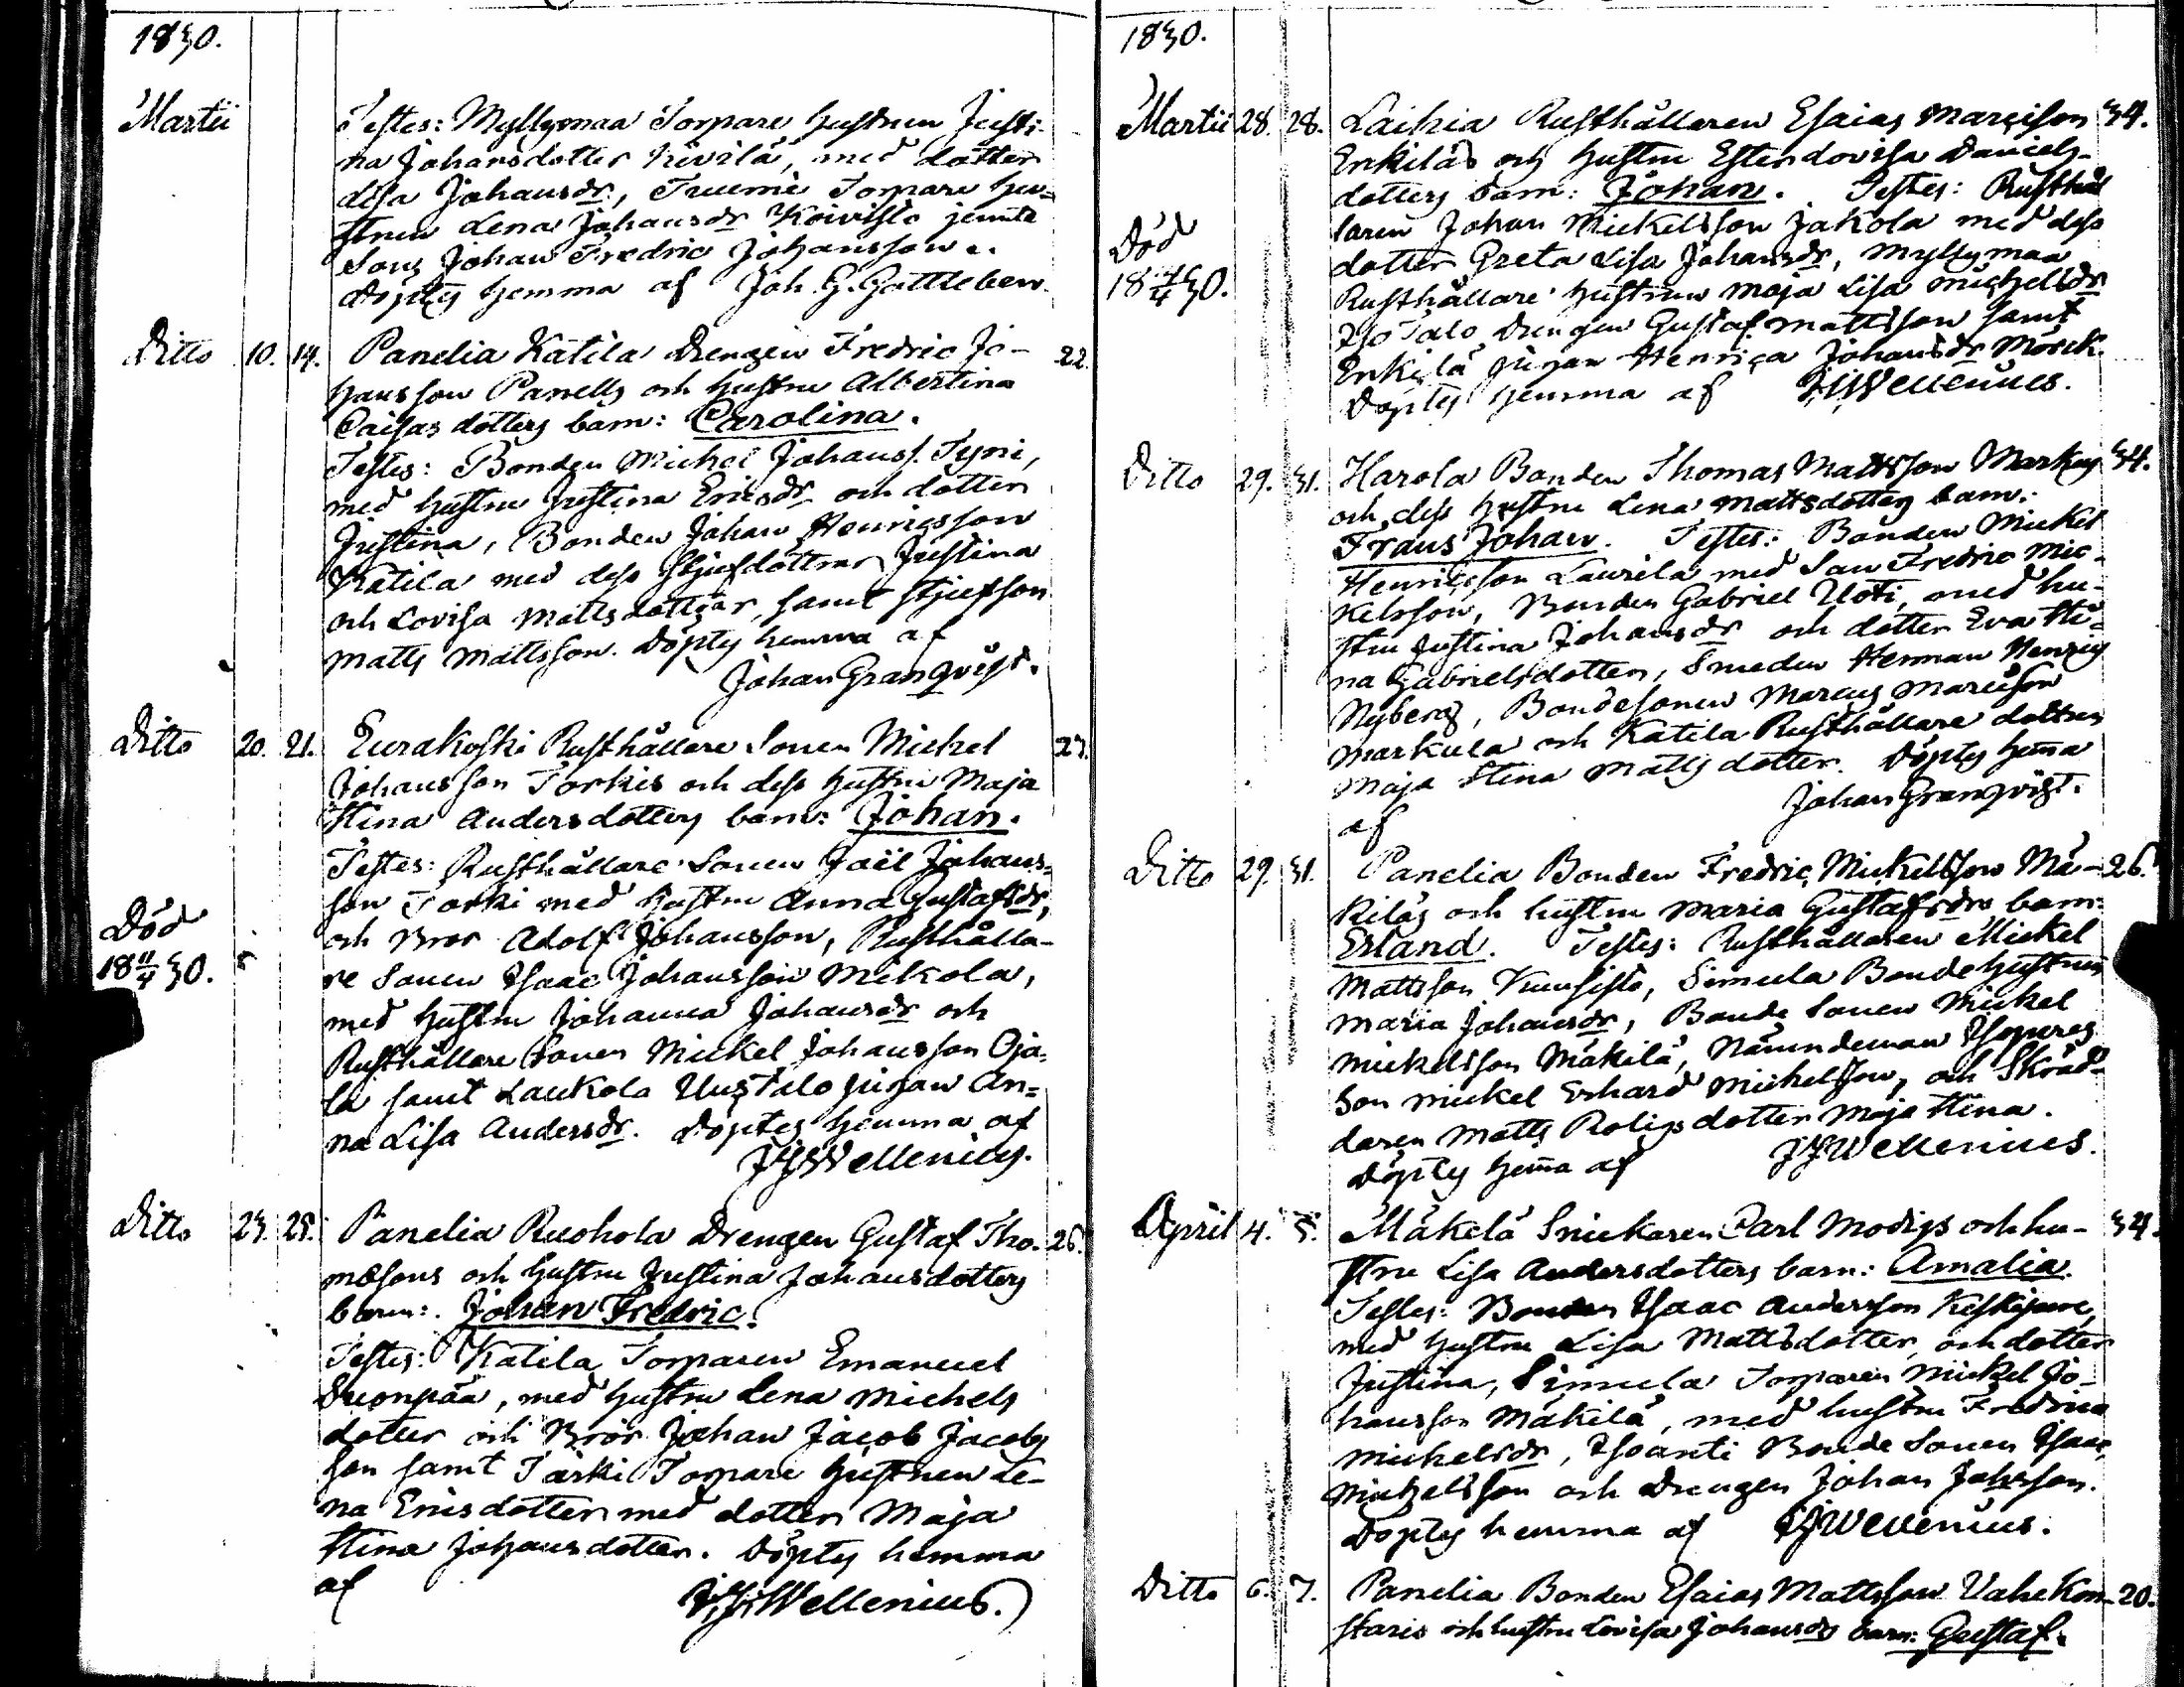 1830.
Martii
Testes: Myllymaa Torpare hustrun Justi-
na Johansdotter Kivilä, med dotter
Lisa Johansdr, Torpare hu-
strun Lena Johansdr Koivisto jemte
Son Johan Fredric Johansson.
Döptes hemma af Joh. G. Gottleben.
Ditto 10. 14. Panelia Katila Drengen Fredric Jo- 22.
hansson Panells och hustru Albertina
Caisasdotters barn: Carolina.
Testes: Bonden Michel Johanss. Tyni,
med hustru Justina Ericsdr och dotter
Justina, Bonden Johan Henricsson
Katila med dess Stjufdöttrar Justina
och Lovisa Mattsdöttrar, samt stjufson
Matts Mattsson. Döptes hemma af
Johan Granqvist.
Ditto 20. 21. Eurakoski Rusthållare Sonen Michel 27.
Johansson Torkis och dess hustru Maja
Stina Andersdotters barn: Johan.
Testes: Rusthållare Sonen Joël Johans-
son Torki med hustru Anna Gustafsdr,
och Bror Adolf Johansson, Rusthålla-
Död
18 11/4 30.
re Sonen Isaac Johansson Mekola,
med hustru Johanna Johansdr och
Rusthållare Sonen Mickel Johansson Oja-
la samt Laukola Uusitalo pigan An-
na Lisa Andersdr. Döptes hemma af
JHWellenius.
Ditto 23. 25. Panelia Ruohola Drengen Gustaf Tho- 26.
mæsons och hustru Justina Johansdotters
barn: Johan Fredric.
Testes: Katila Torparen Emanuel
Suonpää, med hustru Lena Michels
dotter och Bror Johan Jacob Jacobs
son samt Tärki Torpare hustrun Le-
na Ericsdotter med dotter Maja
Stina Johansdotter. Döptes hemma
af JHWellenius.
1830.
Martii 28. 28. Laihia Rusthållaren Esaias Marcison 34.
Enkiläs och hustru Ester Lovisa Daniels-
dotters barn: Johan. Testes: Rusthål
laren Johan Mickelsson Jakola med dess
Död
18 4/4 30.
dotter Greta Lisa Johansdr, Myllymaa
Rusthållare hustrun Maja Lisa Michelsdr
Iso Talo Drengen Gustaf Mattsson samt
Enkilä pigan Henrica Johansdr Mörck.
Döptes hemma af JHWellenius.
Ditto 29. 31. Harola Bonden Thomas Mattsson Markus 34.
och dess hustru Lena Mattsdotters barn:
Frans Johan. Testes: Bonden Mickel
Henricsson Laurila med Son Fredric Mic-
kelsson, Bonden Gabriel Uoti, med hu-
stru Justina Johansdr och dotter Eva Sti-
na Gabrielsdotter, Smeden Herman Henric
Nyberg, Bondesonen Marcus Marcison
Markula och Katila Rusthållare dottren
Maja Stina Matts dotter. Döptes hema
af Johan Granqvist.
Ditto 29. 31. Panelia Bonden Fredric Mickelsson Mä- 26.
kiläs och hustru Maria Gustafsdrs barn:
Erland. Testes: Rusthållaren Mickel
Mattsson Kuusisto, Simula Bonde hustrun
Maria Johansdr, Bonde Sonen Mickel
Mickelsson Mäkilä, Nämndeman
Son Mickel Erhard Mickelsson, och Skräd-
daren Matts Roligs dotter Maja Stina.
Döptes hema af JHWellenius.
April 4. 5. Mäkelä Snickaren Carl Modigs och hu- 34.
stru Lisa Andersdotters barn: Amalia.
Testes: Bonden Isaac Andersson
med hustru Lisa Mattsdotter, och dotter
Justina, Simula Torparen Mickel Jo-
hansson Mäkilä, med hustru Fredrica
Mickelsdr, Isoantti Bonde Sonen Isaac
Michelsson och Drengen Johan Johsson.
Döptes hemma af JHWellenius.
Ditto 6. 7. Panelia Bonden Esaias Mattsson Vähe Kon- 20.
staris och hustru Lovisa Johansdrs barn: Gustaf.